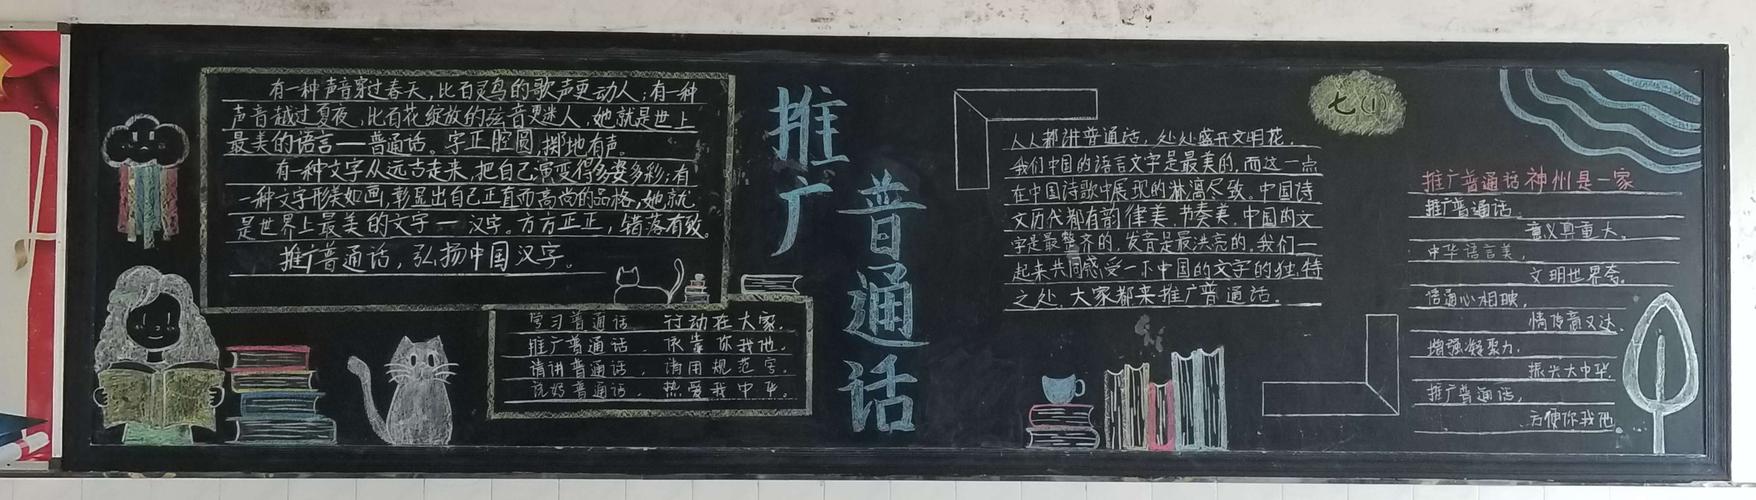 有一种声音穿过春天，比百灵鸟的歌声更动人；有一种
声音越过夏夜，比百花绽放的弦音更迷人，她就是世上
最美的语言——普通话。字正腔圆，掷地有声。
有一种文字从远古走来，把自己演变得多姿多彩；有
一种文字形美如画，彰显出自己正直而高尚的品格，她就
是世界上最美的文字——汉字。方方正正，错落有致。
推广普通话，弘扬中国汉字。
学习普通话 行动在大家。
推广普通话、依靠你我他。
请讲普通话、请用规范字。
说好普通话、热爱我中华。
推广
普通话
七(1)
人人都讲普通话，处处盛开文明花。
我们中国的语言文字是最美的，而这一点
在中国诗歌中展现的淋漓尽致。中国诗
文历代都有韵律美、节奏美，中国的文
字是最整齐的，发音是最洪亮的，我们一
起来共同感受一下中国的文字的独特
之处，大家都来推广普通话。
推广普通话神州是一家
推广普通话。
意义真重大。
中华语言美，
文明世界夸。
语通心相映，
情传意又达。
增强凝聚力，
振兴大中华。
推广普通话，
方便你我他。